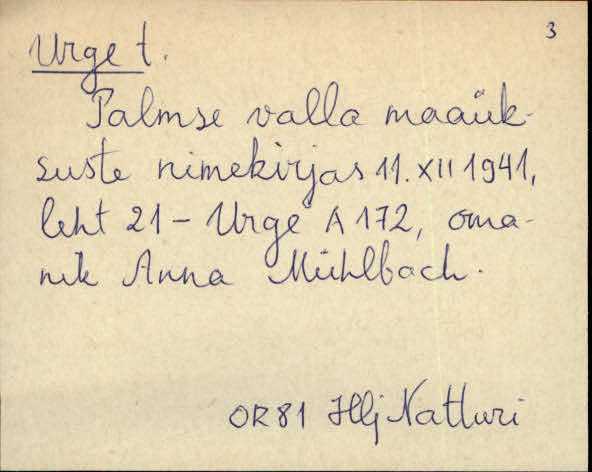 3
Urge t.
Palmse valla maaük-
suste nimekirjas 11. XII 1941,
leht 21 - Urge A 172, oma-
nik Anna Mühlbach.
OR 81 Hlj Natturi